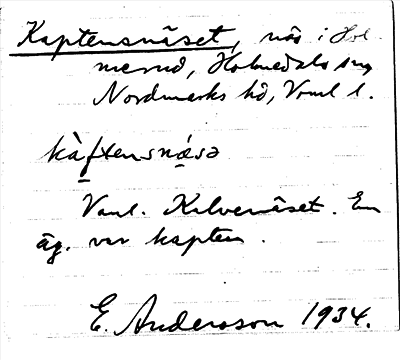 Kaptensnäset, näs i Hol-
merud, Holmedals sng
Nordmarks hd, Vrml l.
kàftensnǽsə
Vanl. Kilvenäset. En
äg. var kapten.
E. Andersson 1934.